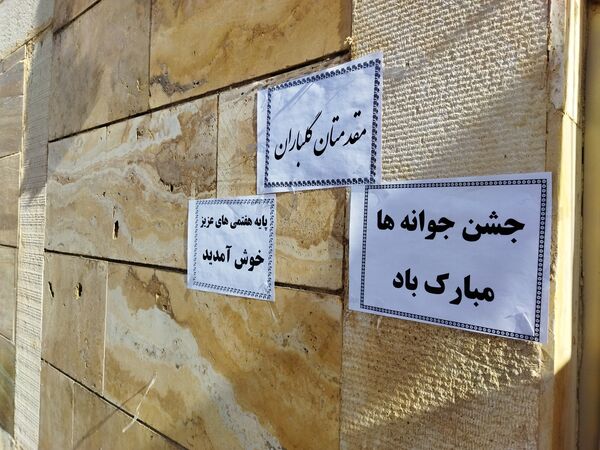 مقدمتان گلباران
پایه هفتمی های عزیز
خوش آمدید
جشن جوانه ها
مبارک باد